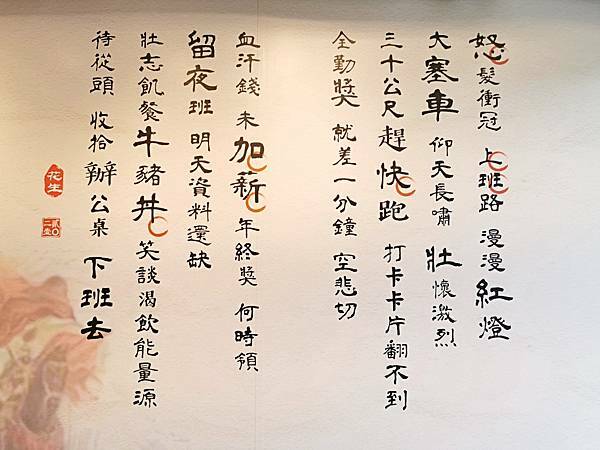 怒髮衝冠 上班路 漫漫紅燈
大塞車 仰天長嘯 壯懷激烈
三十公尺趕快跑 打卡卡片翻不到
全勤獎 就差一分鐘 空悲切
血汗錢 未加薪 年終獎 何時領
留夜班 明天資料還缺
壯志飢餐牛豬丼 笑談渴飲能量源
待從頭 收拾辦公桌 下班去
花生